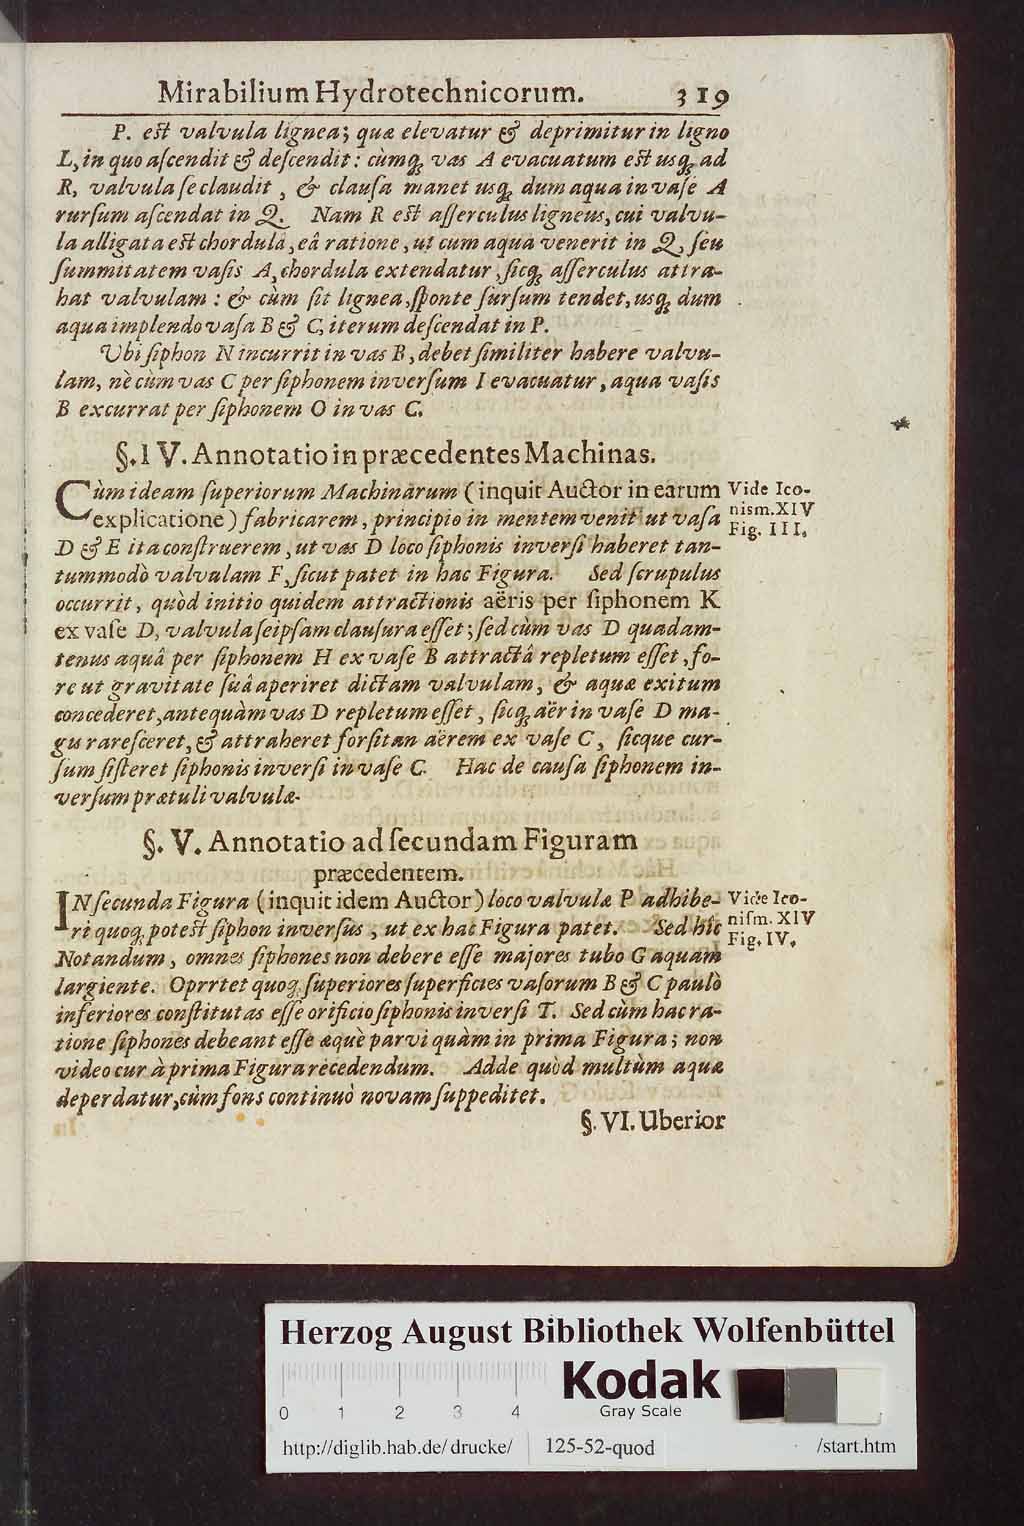 Mirabilium Hydrotechnicorum. 319
P. est valvula lignea; quæ elevatur & deprimitur in ligno
L, in quo aſcendit & deſcendit: cùmq; vas A evacuatum est usq; ad
R, valvula ſe claudit, & clauſa manet usq; dum aqua in vaſe A
rurſum aſcendat in Q. Nam R est aſſerculus ligneus, cui valvu-
la alligata est chordulâ, eâ ratione, ut cum aqua venerit in Q, ſeu
ſummitatem vaſis A, chordula extendatur, ſicq; aſſerculus attra-
hat valvulam: & cùm ſit lignea, ſponte ſurſum tendet, usq; dum
aqua implendo vaſa B & C, iterum deſcendat in P.
Ubi ſiphon N incurrit in vas B, debet ſimiliter habere valvu-
lam, nè cùm vas C per ſiphonem inverſum I evacuatur, aqua vaſis
B excurrat per ſiphonem O in vas C.
§. IV. Annotatio in præcedentes Machinas.
Cùm ideam ſuperiorum Machinarum (inquit Auctor in earum
explicatione) fabricarem, principio in mentem venit ut vaſa
D & E ita conſtruerem, ut vas D loco ſiphonis inverſi haberet tan-
tummodò valvulam F, ſicut patet in hac Figura. Sed ſcrupulus
occurrit, quòd initio quidem attractionis aëris per ſiphonem K
ex vaſe D, valvula ſeipſam clauſura eſſet; ſed cùm vas D quadam-
tenus aquâ per ſiphonem H ex vaſe B attractâ repletum eſſet, fo-
re ut gravitate ſuâ aperiret dictam valvulam, & aquæ exitum
concederet, antequàm vas D repletum eſſet, ſicq; aër in vaſe D ma-
gis rareſceret, & attraheret forſitan aërem ex vaſe C, ſicque cur-
ſum ſiſteret ſiphonis inverſi in vaſe C. Hac de cauſa ſiphonem in-
verſum prætuli valvulæ.
Vide Ico-
nism. XIV
Fig. III.
§. V. Annotatio ad ſecundam Figuram
præcedentem.
IN ſecunda Figura (inquit idem Auctor) loco valvulæ P adhibe-
ri quoq; potest ſiphon inverſus, ut ex hac Figura patet. Sed hîc
Notandum, omnes ſiphones non debere eſſe majores tubo G aquam
largiente. Oprrtet quoq; ſuperiores ſuperficies vaſorum B & C paulò
inferiores conſtitutas eſſe orificio ſiphonis inverſi T. Sed cùm hac ra-
tione ſiphones debeant eſſe æquè parvi quàm in prima Figura; non
video cur à prima Figura recedendum. Adde quòd multùm aquæ
deperdatur, cùm fons continuò novam ſuppeditet.
Vide Ico-
niſm. XIV
Fig. IV.
§. VI. Uberior
Herzog August Bibliothek Wolfenbüttel
Kodak
Gray Scale
0 1 2 3 4
http://diglib.hab.de/drucke/ 125-52-quod /start.htm